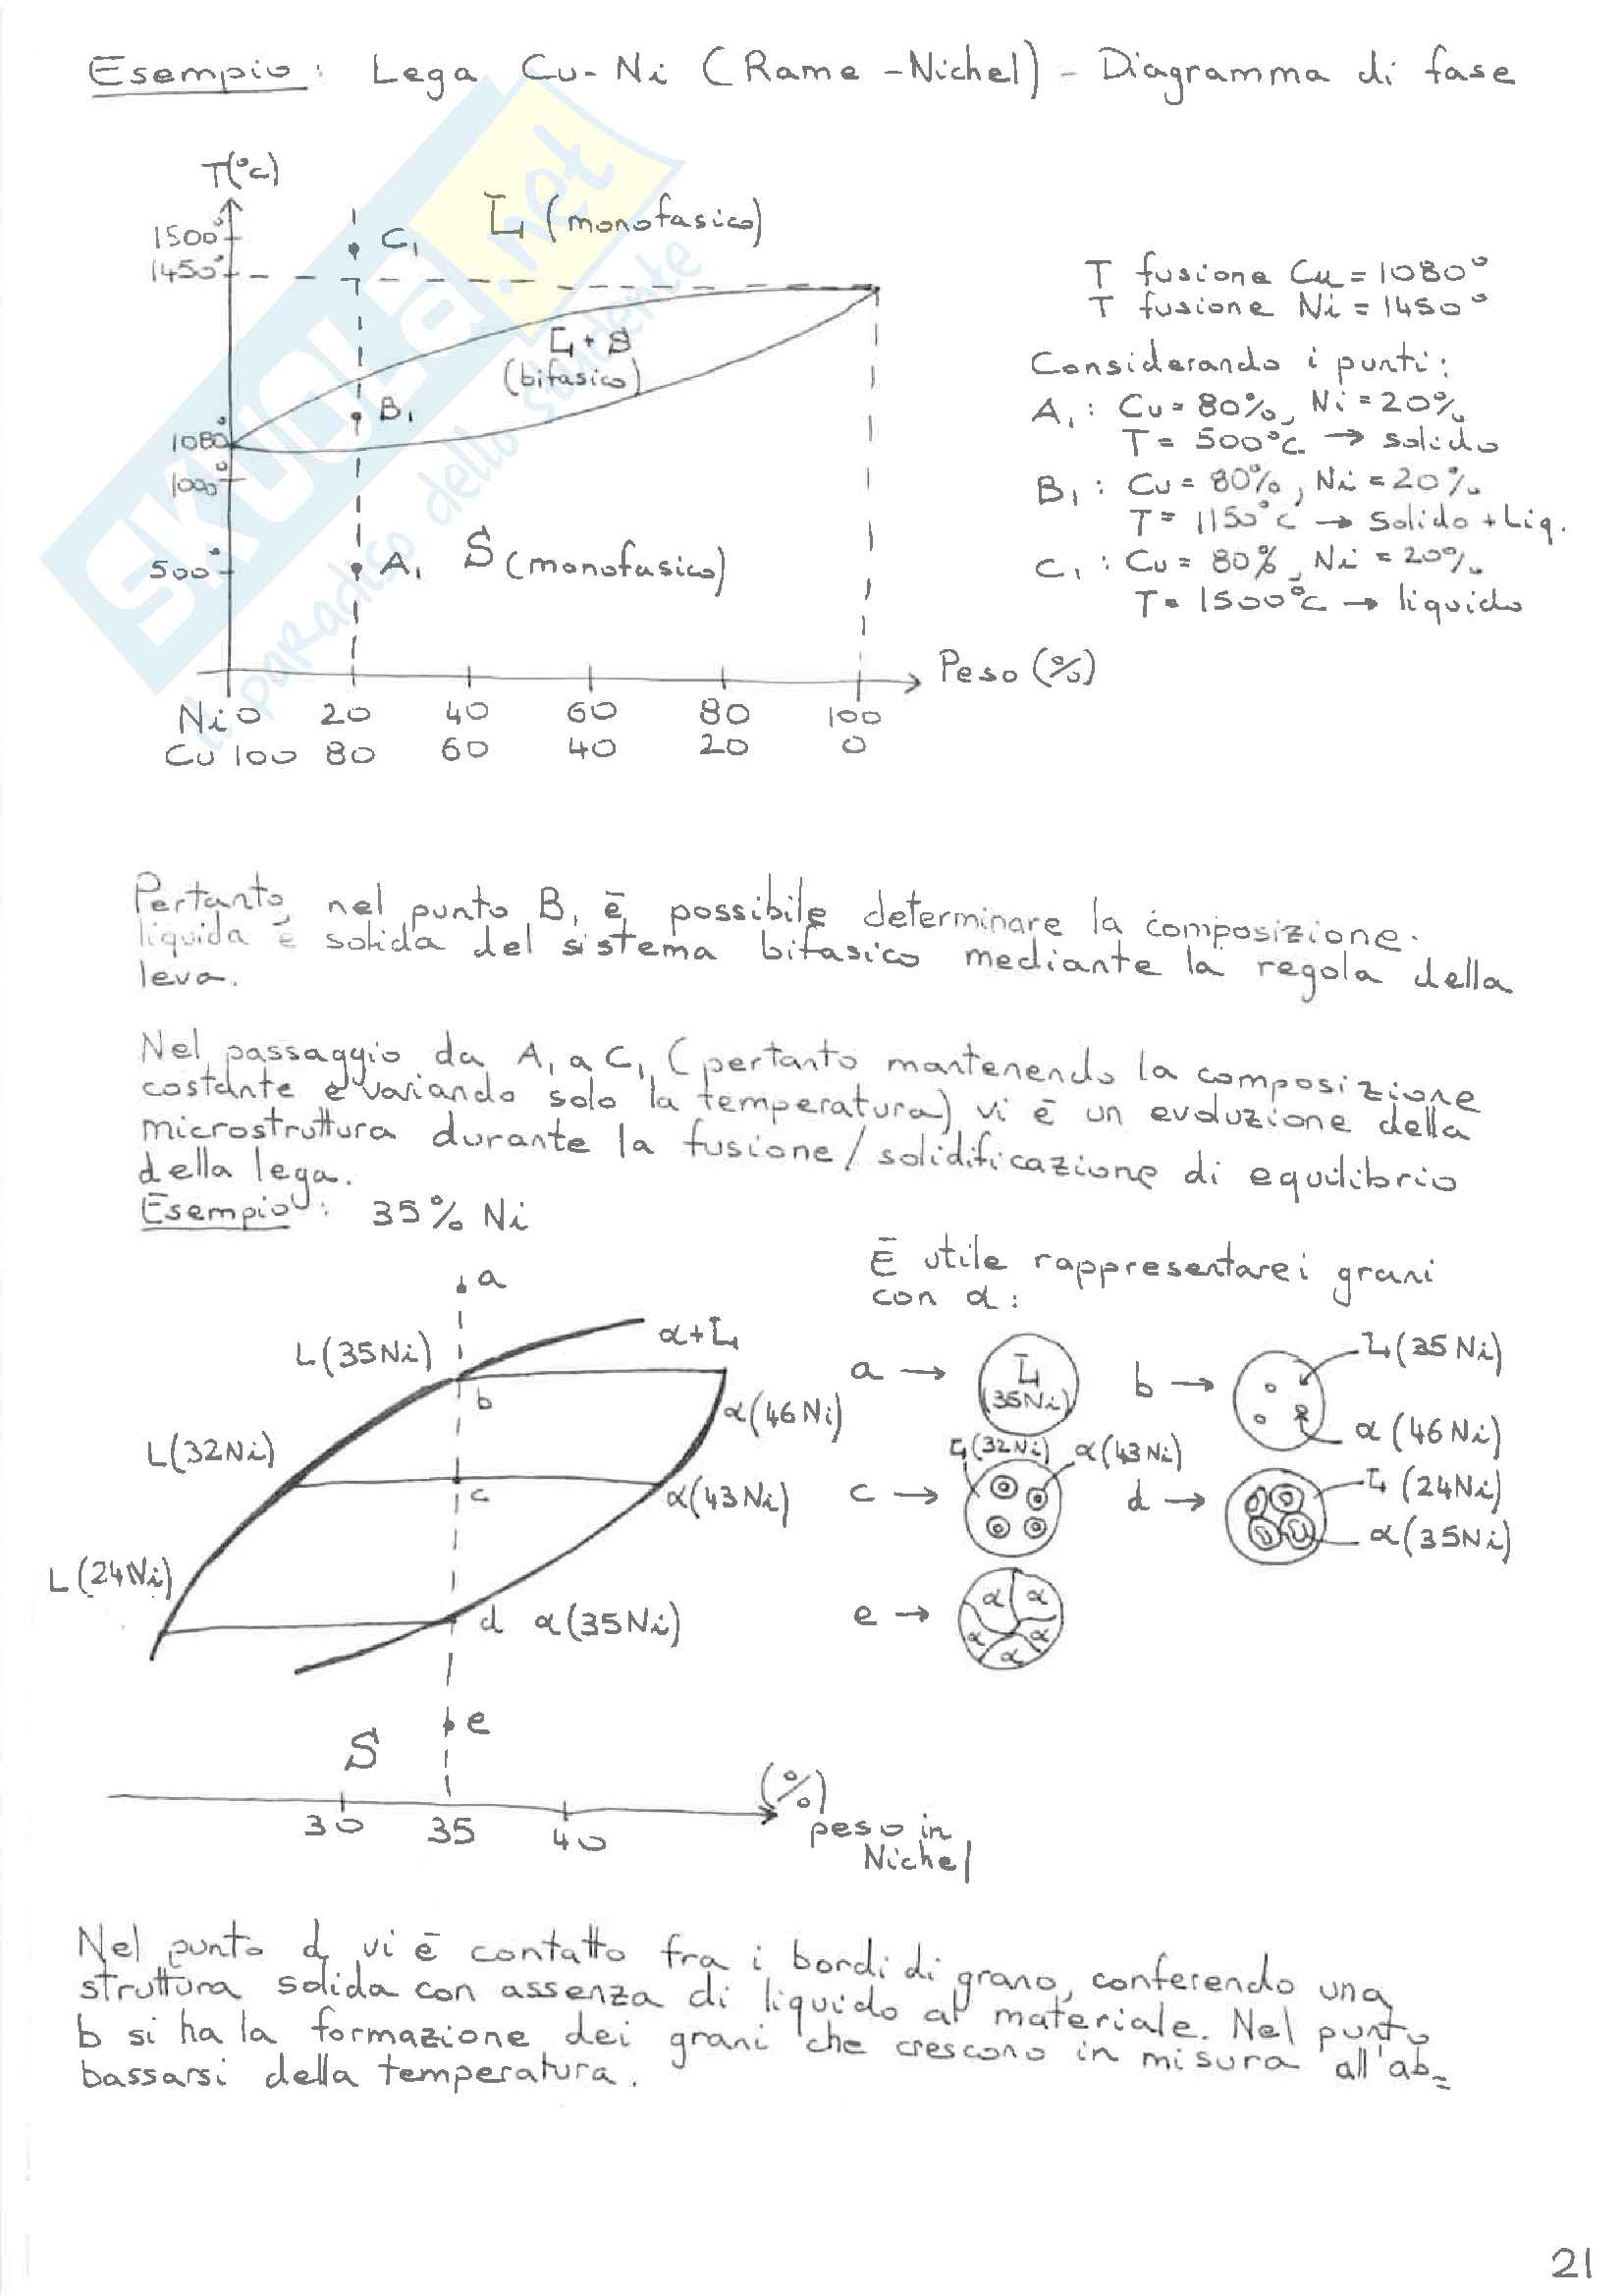 Esempio: Lega Cu-Ni (Rame-Nichel) - Diagramma di fase
T(°C)
1500°
C₁
L (monofasico)
1450°
L+S
(bifasico)
B₁
1080°
1000°
500°
A₁
S (monofasico)
Peso (%)
Ni 0 20 40 60 80 100
Cu 100 80 60 40 20 0
T fusione Cu = 1080°
T fusione Ni = 1450°
Considerando i punti:
A₁: Cu = 80%, Ni = 20%
T = 500°C → solido
B₁: Cu = 80%, Ni = 20%
T = 1150°C → Solido + Liq.
C₁: Cu = 80%, Ni = 20%
T = 1500°C → liquido
SKUOLA.net
il paradiso dello studente
Pertanto, nel punto B₁ è possibile determinare la composizione
liquida e solida del sistema bifasico mediante la regola della
leva.
Nel passaggio da A₁ a C₁ (pertanto mantenendo la composizione
costante e variando solo la temperatura) vi è un evoluzione della
microstruttura durante la fusione/solidificazione di equilibrio
della lega.
Esempio: 35% Ni
a
L(35Ni)
α+L
b
α(46Ni)
L(32Ni)
c
α(43Ni)
L(24Ni)
d α(35Ni)
e
S
30 35 40
(%)
peso in
Nichel
È utile rappresentare i grani
con α:
a → L (35Ni)
b → L(35Ni)
α(46Ni)
c → L(32Ni) α(43Ni)
d → L(24Ni)
α(35Ni)
e → α α α α α
Nel punto d vi è contatto fra i bordi di grano, conferendo una
struttura solida con assenza di liquido al materiale. Nel punto
b si ha la formazione dei grani che crescono in misura all'ab=
bassarsi della temperatura.
21